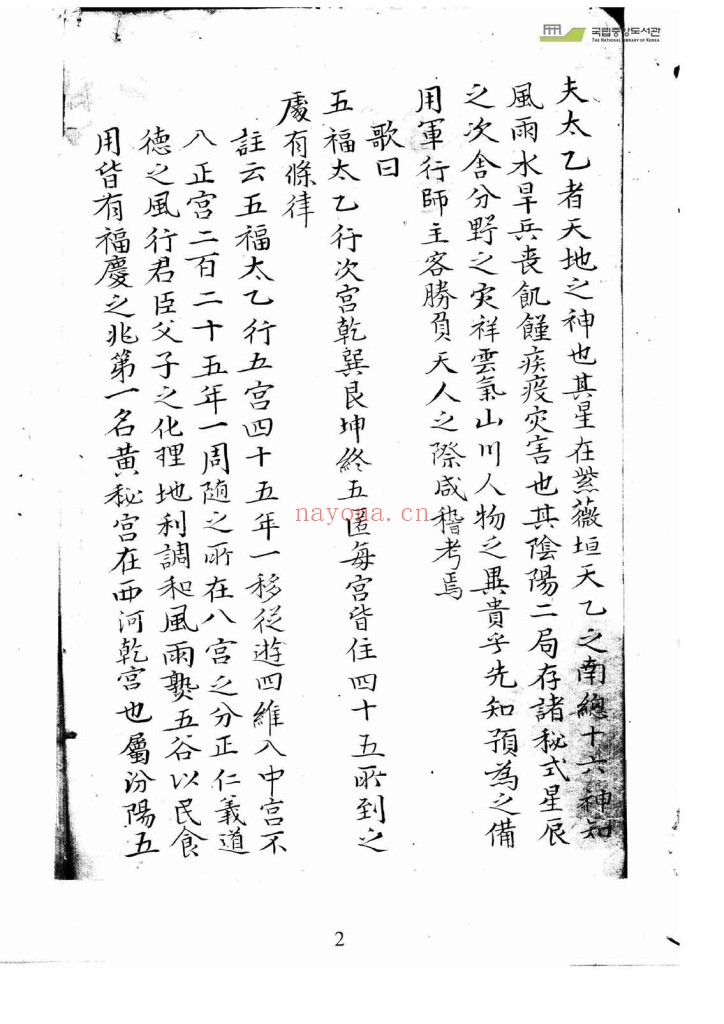 국립중앙도서관
THE NATIONAL LIBRARY OF KOREA
夫太乙者天地之神也其星在紫薇垣天乙之南總十六神知
風雨水旱兵喪飢饉疾疫灾害也其陰陽二局存諸秘式星辰
之次舍分野之灾祥雲氣山川人物之異貴乎先知預為之備
用軍行師主客勝負天人之際咸稽考焉
歌曰
五福太乙行次宮乾巽艮坤終五匿每宮皆住四十五所到之
處有條律
註云五福太乙行五宮四十五年一移從遊四維八中宮不
八正宮二百二十五年一周随之所在八宮之分正仁義道
德之風行君臣父子之化理地利調和風雨熟五谷以民食
用皆有福慶之兆第一名黄秘宮在西河乾宮也屬汾陽五
nayona.cn
2